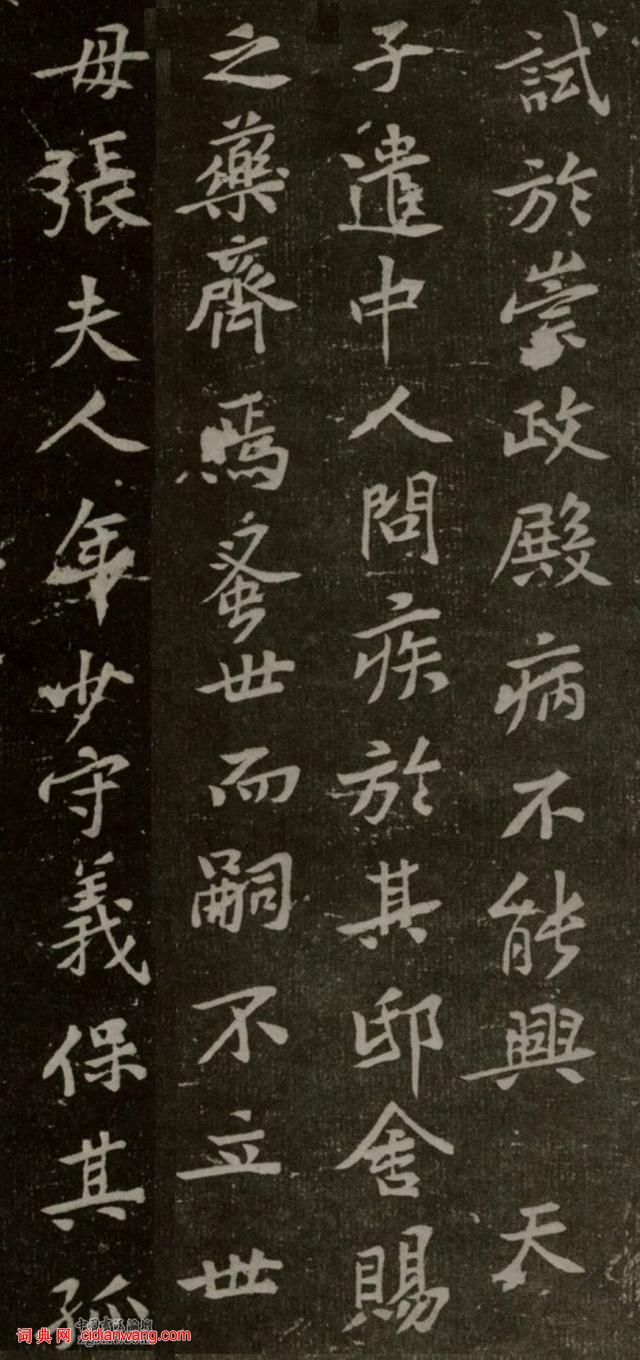 試於崇政殿病不能興　天
子遣中人問疾於其邸舍賜
之藥齊焉蚤世而嗣不立世
母張夫人年少守義保其孤
词典网 cidianwang.com